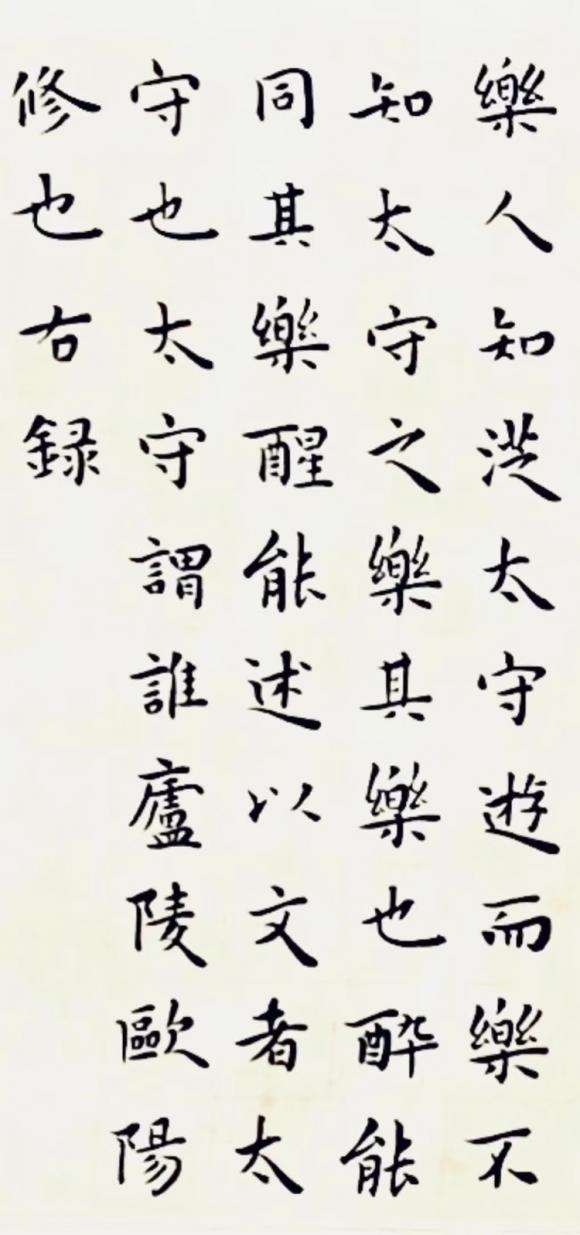 樂人知從太守遊而樂不
知太守之樂其樂也醉能
同其樂醒能述以文者太
守也太守謂誰廬陵歐陽
修也右録